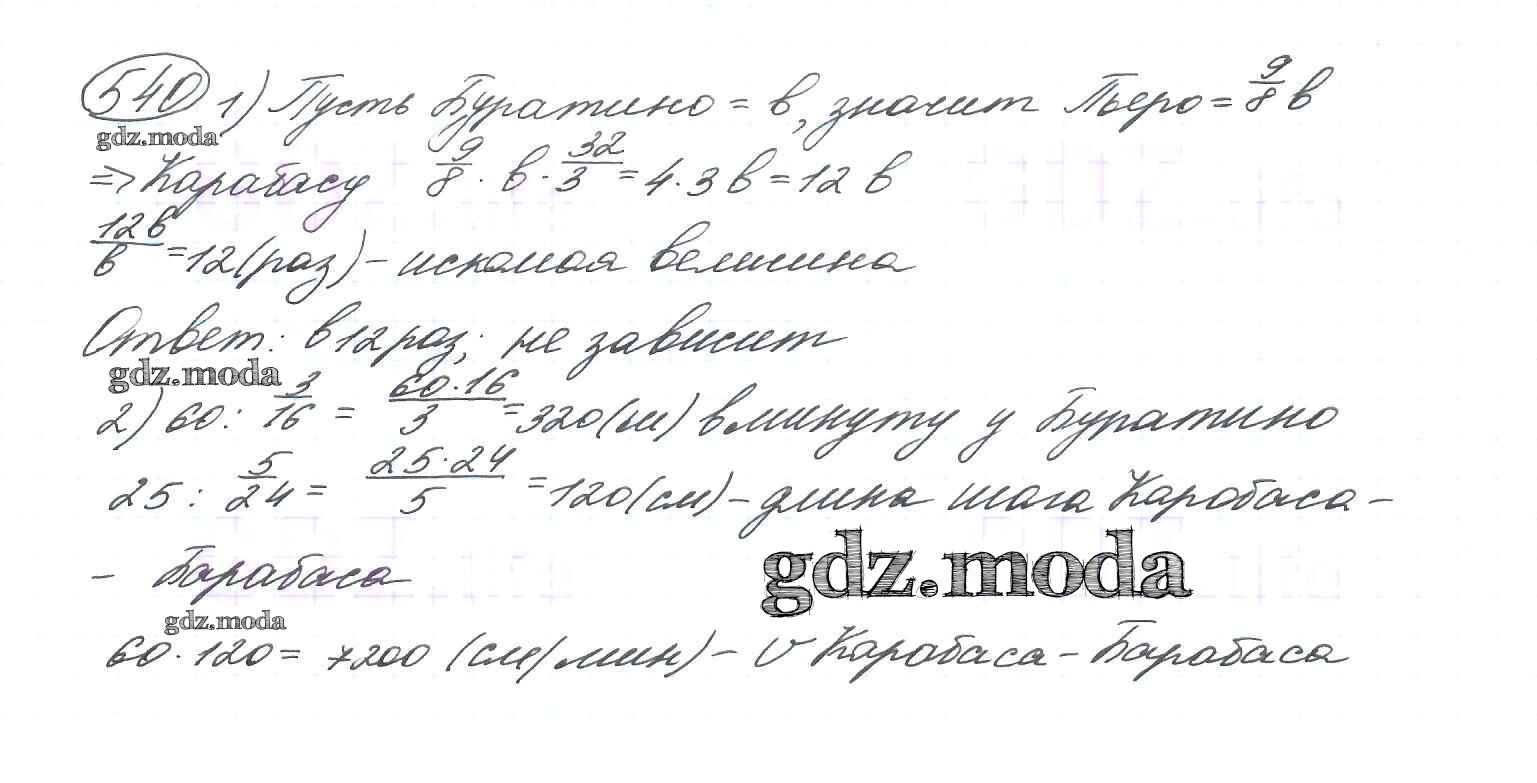 540 1) Пусть Буратино = в, значит Пьеро = 9/8 в
gdz.moda
=> Карабасу 9/8 · в · 32/3 = 4·3в = 12 в
12в/в = 12 (раз) – искомая величина
Ответ: в 12 раз; не зависит
gdz.moda
2) 60 : 3/16 = 60·16/3 = 320 (ш) в минуту у Буратино
25 : 5/24 = 25·24/5 = 120 (см) – длина шага Карабаса –
– Барабаса
gdz.moda
gdz.moda
60·120 = 7200 (см/мин) – v Карабаса – Барабаса